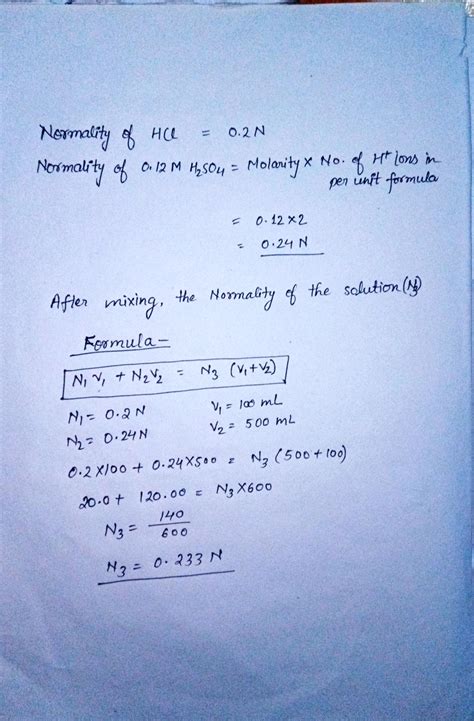 Normality of HCl = 0.2 N
Normality of 0.12 M H₂SO₄ = Molarity × No. of H⁺ Ions in
per unit formula
= 0.12 × 2
= 0.24 N
After mixing, the Normality of the solution (N₃)
Formula -
N₁V₁ + N₂V₂ = N₃ (V₁+V₂)
N₁ = 0.2 N V₁ = 100 mL
N₂ = 0.24 N V₂ = 500 mL
0.2×100 + 0.24×500 = N₃ (500+100)
20.0 + 120.00 = N₃×600
N₃ = 140/600
N₃ = 0.233 N